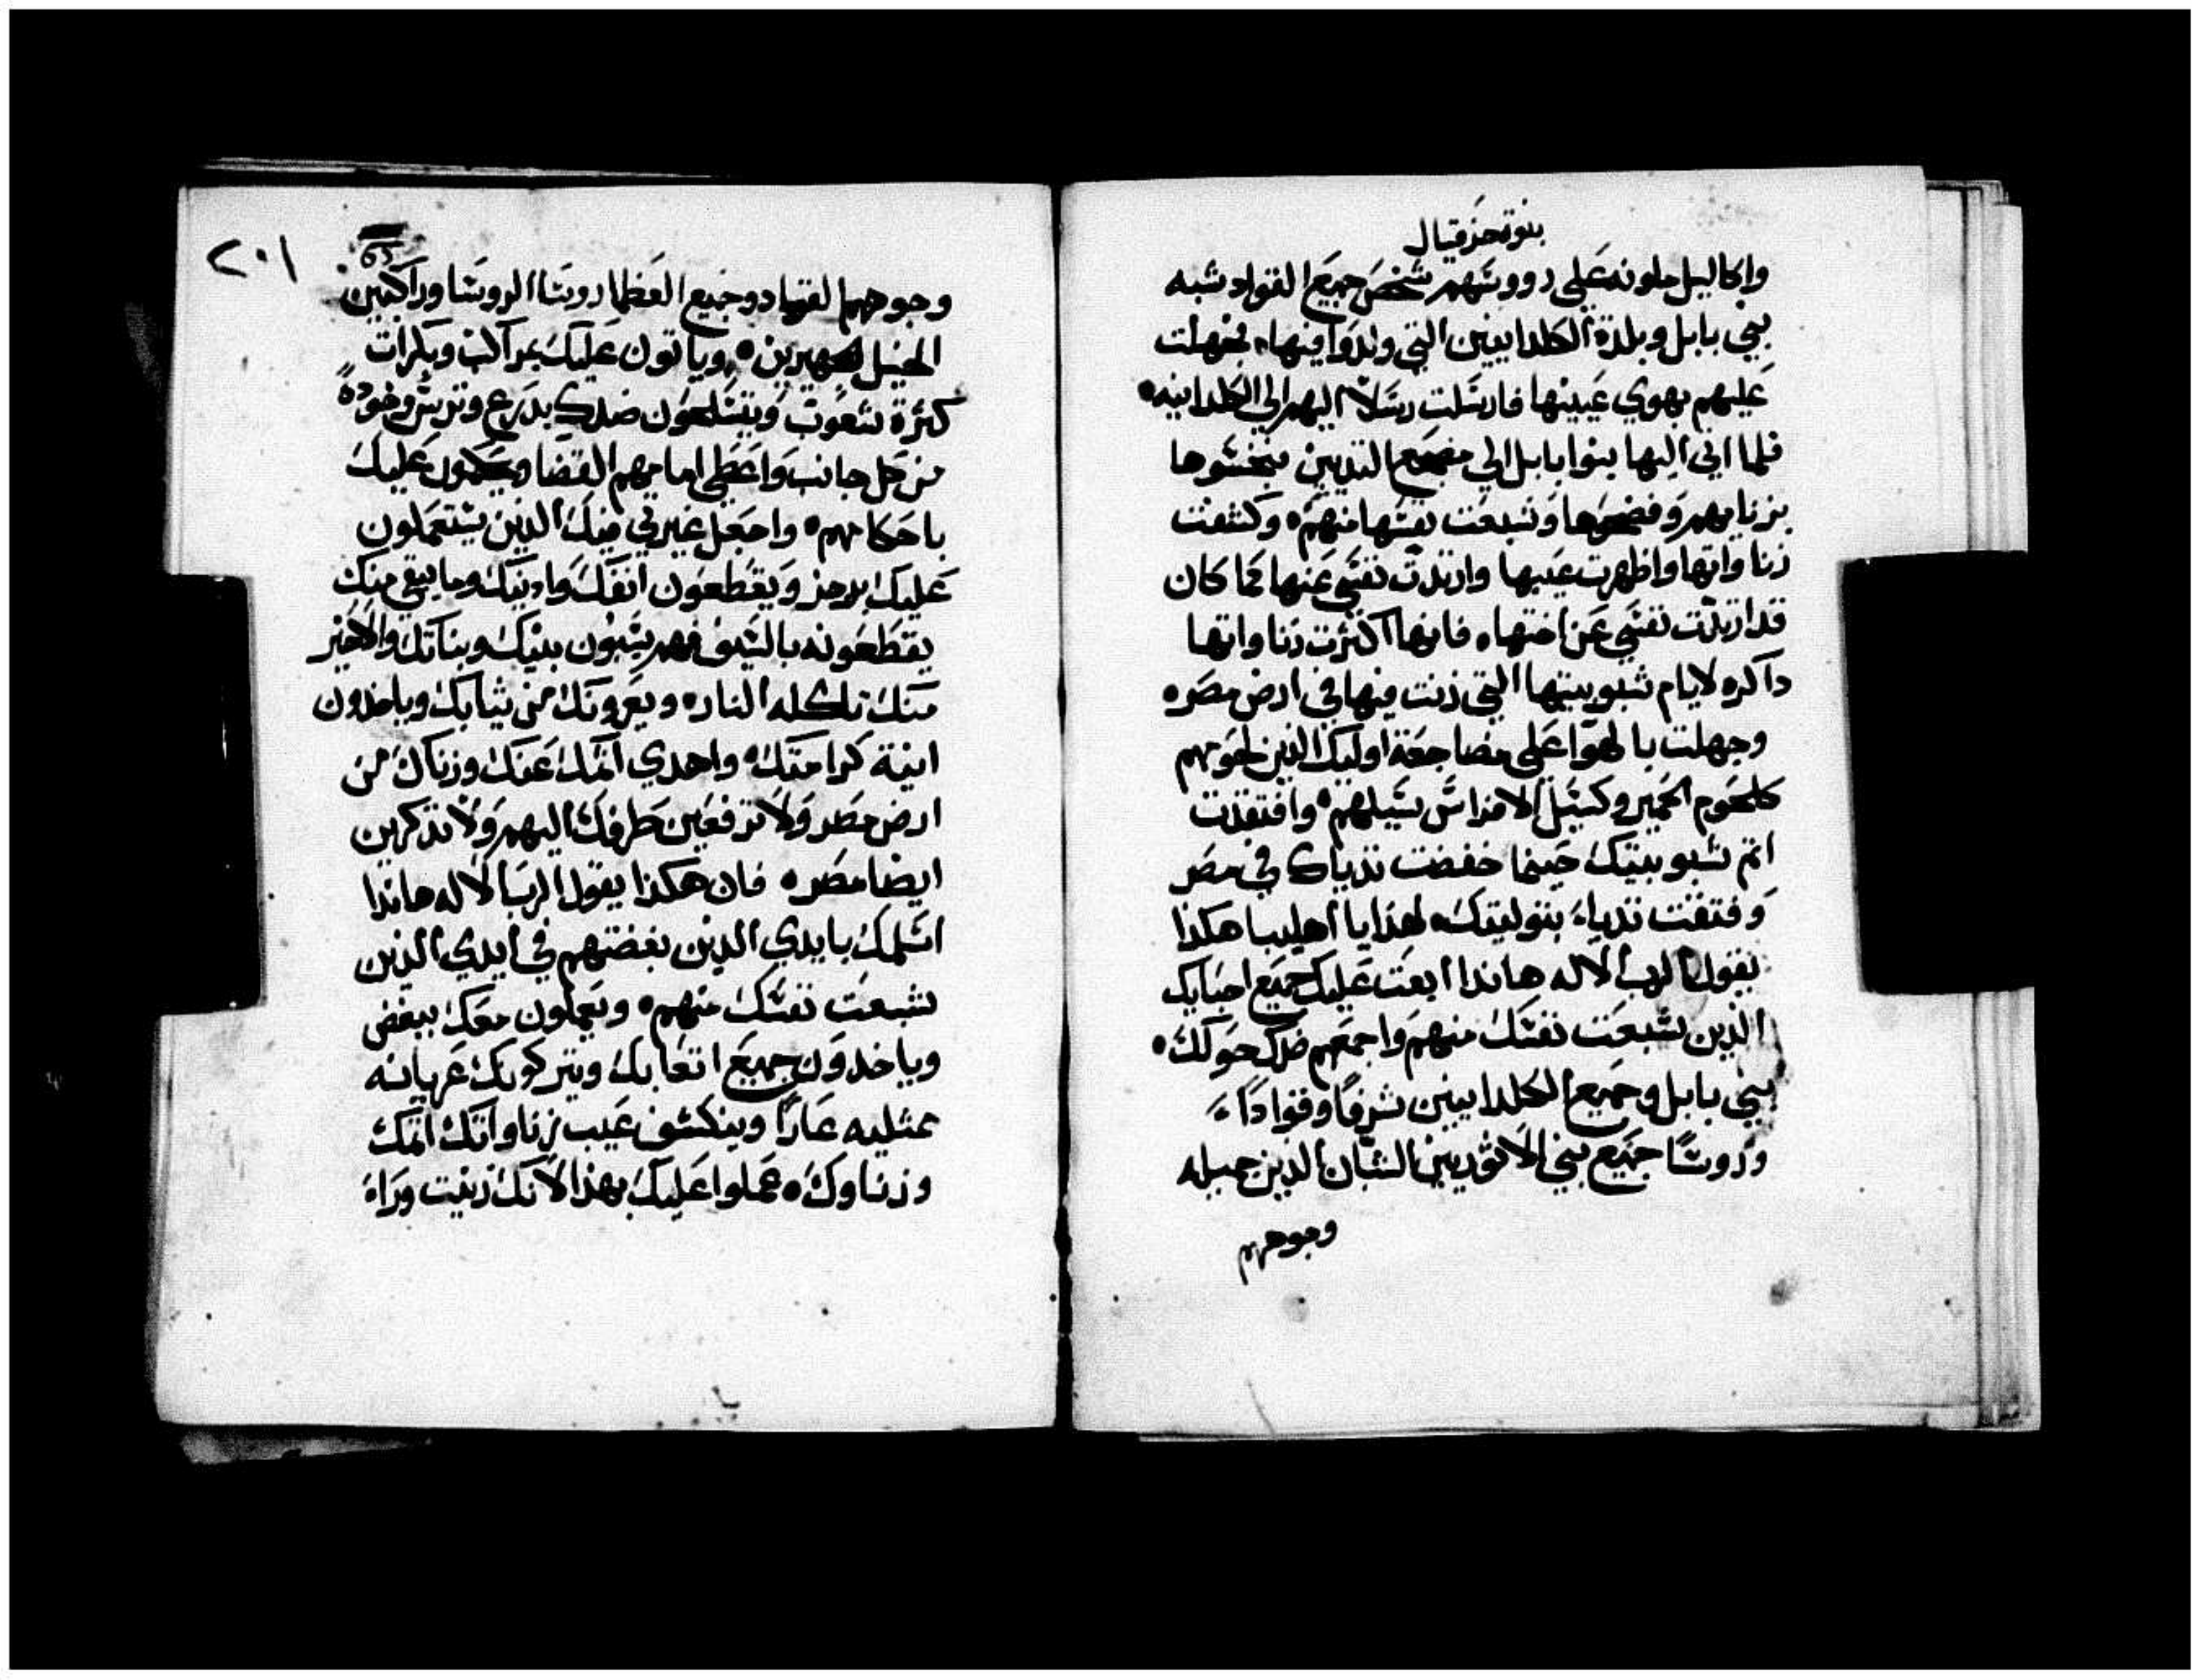 بنوة حزقيال
واكاليل ملونه على رووسهم شخص جميع القواد شبه
بني بابل وبلدة الكلدانيين التي ولدوا فيها. فجهلت
عليهم بهوي عينيها فارسلت رسلاً اليهم الي الكلدانيه.
فلما اتي اليها بنوا بابل الي مضجع التديين نجسوها
بزناهم وفضحوها وشبعت نفسها منهم. وكشفت
زناواتها واظهرت عيبها وارتدت نفسي عنها كما كان
قد ارتدت نفسي عن اختها. فانها اكثرت زناواتها
داكره لايام شبوبيتها التي زنت فيها في ارض مصر.
وجهلت بالهوا على مضاجعة اوليك الذين لحومهم
كلحوم الحمير وكسيل الافراس سيلهم. وافتقدت
اتم شبوبيتك حينما خفضت تدياك في مصر
وفتقت تدياء بتوليتك. لهذا يا اهليبا هكذا
يقول الرب الاله هاندا ابعت عليك جميع احبايك
الذين شبعت نفسك منهم واجمعهم ضدك حولك.
بني بابل وجميع الكلدانيين شرفاً وقواداً
وروساً جميع بني الاثوريين الشبان الدين جميله
وجوههم
٢٠١
وجوههم القواد وجميع العظما روسا الروسا وراكبين
الخيل شهيرين. وياتون عليك بمراكب وبكرات
كثرة شعوب ويتسلحون ضدك بدرع وترس وخودةً
من كل جانب واعطي امامهم القضا ويحكمون عليك
باحكامهم. واجعل غيرتي فيك الدين يستعملون
عليك بالرجز ويقطعون انفك وادنيك وما يبقي منك
يقطعونه بالسيف فهم يسبون بنيك وبناتك والاخير
منك تاكله النار. ويعرونك من ثيابك وياخدون
انية كرامتك. واهدي اتمك عنك وزناك من
ارض مصر ولا ترفعين طرفك اليهم ولا تذكرين
ايضا مصر. فان هكذا يقول الرب الاله هاندا
اسلمك بايدي الدين بغضتهم في ايدي الدين
شبعت نفسك منهم. ويعملون معك ببغض
وياخدون جميع اتعابك ويتركونك عريانه
ممتليه عاراً وينكشف عيب زناواتك اتمك
وزناوك. عملوا عليك بهذا لانك زنيت وراء